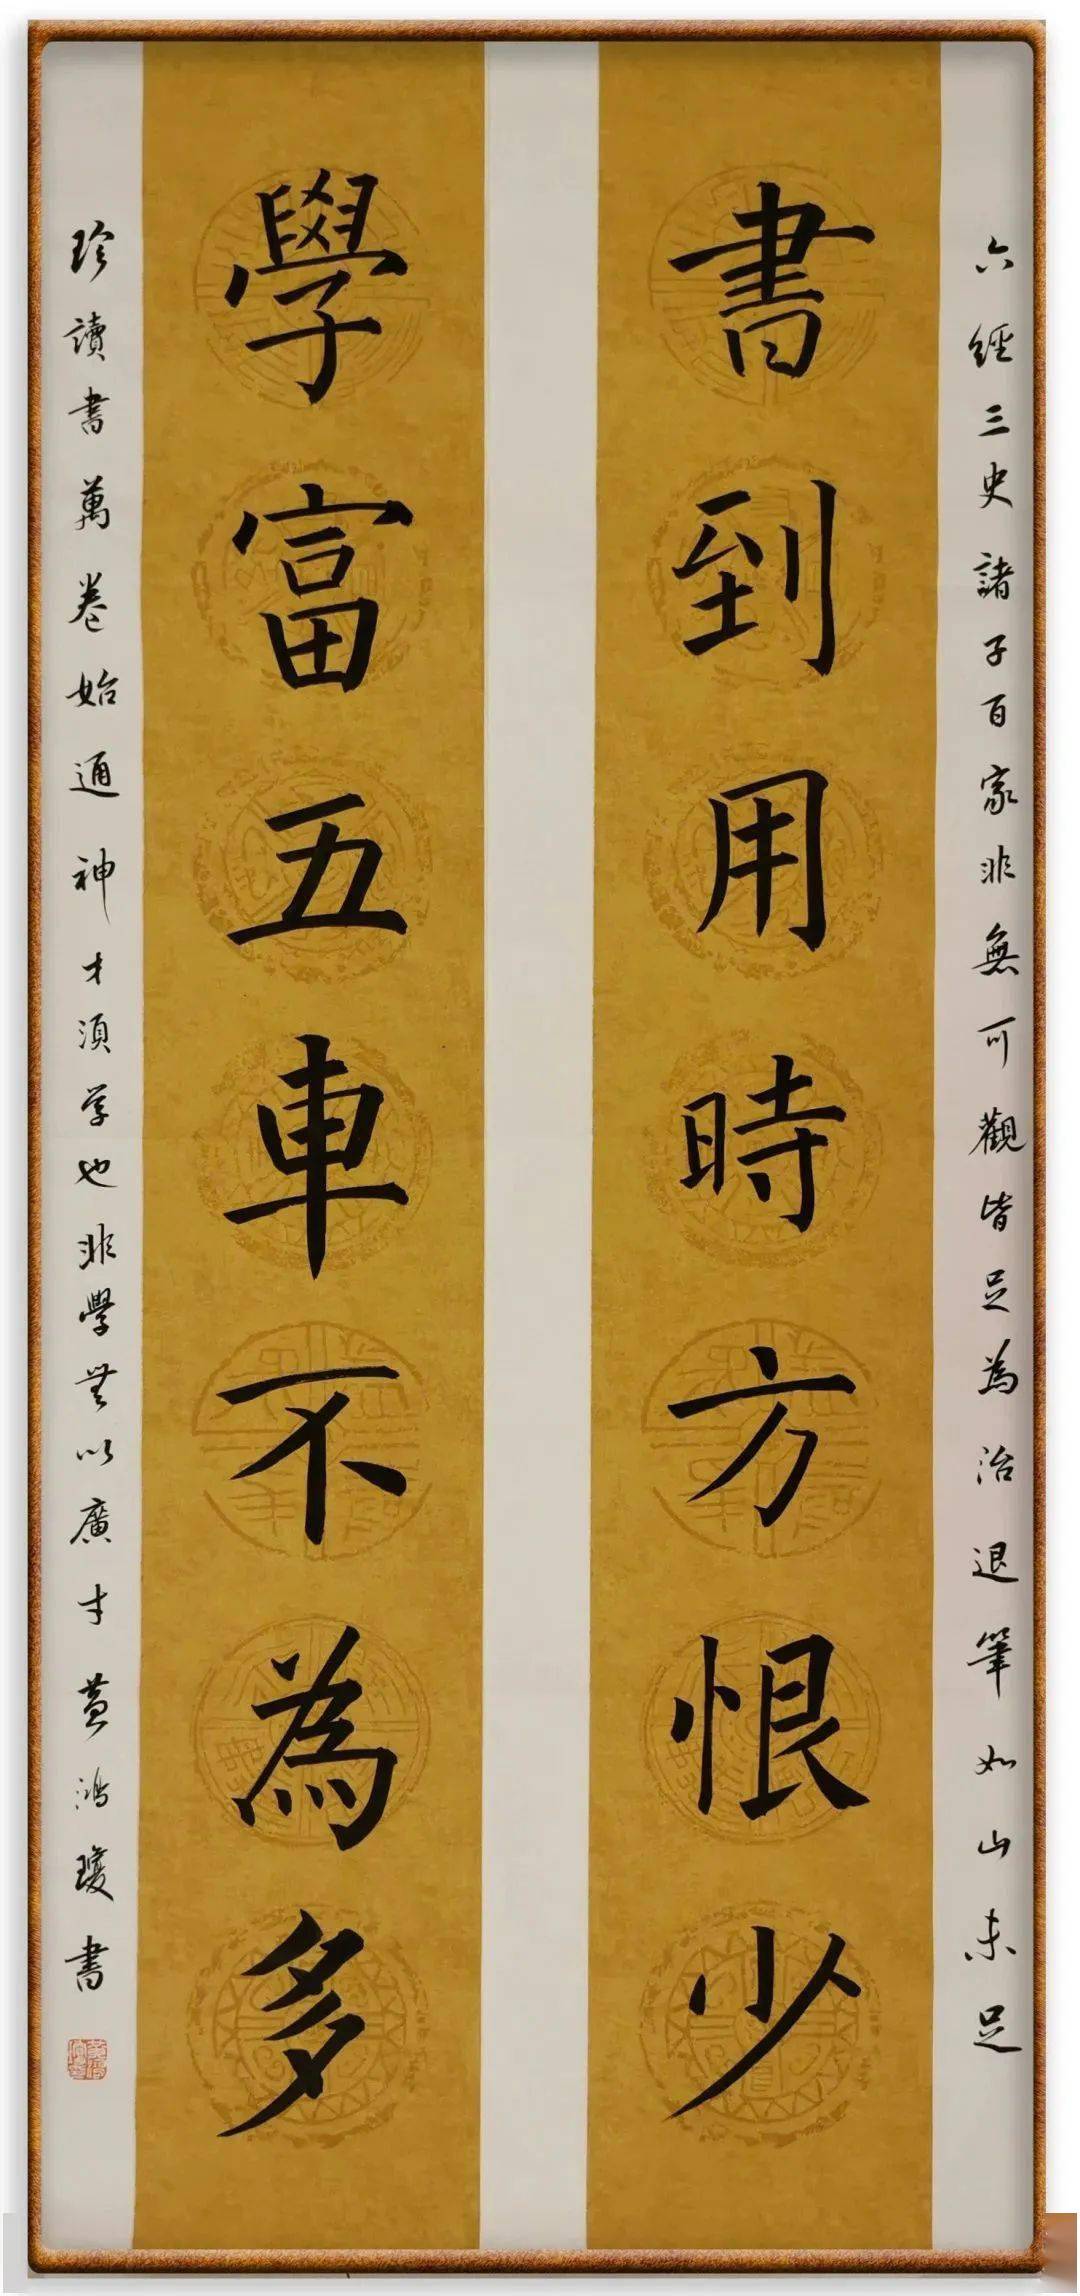 六經三史諸子百家非無可觀皆足為治退筆如山未足
書到用時方恨少
學富五車不為多
珍讀書萬卷始通神才須学也非學無以廣才黃鴻瓊書